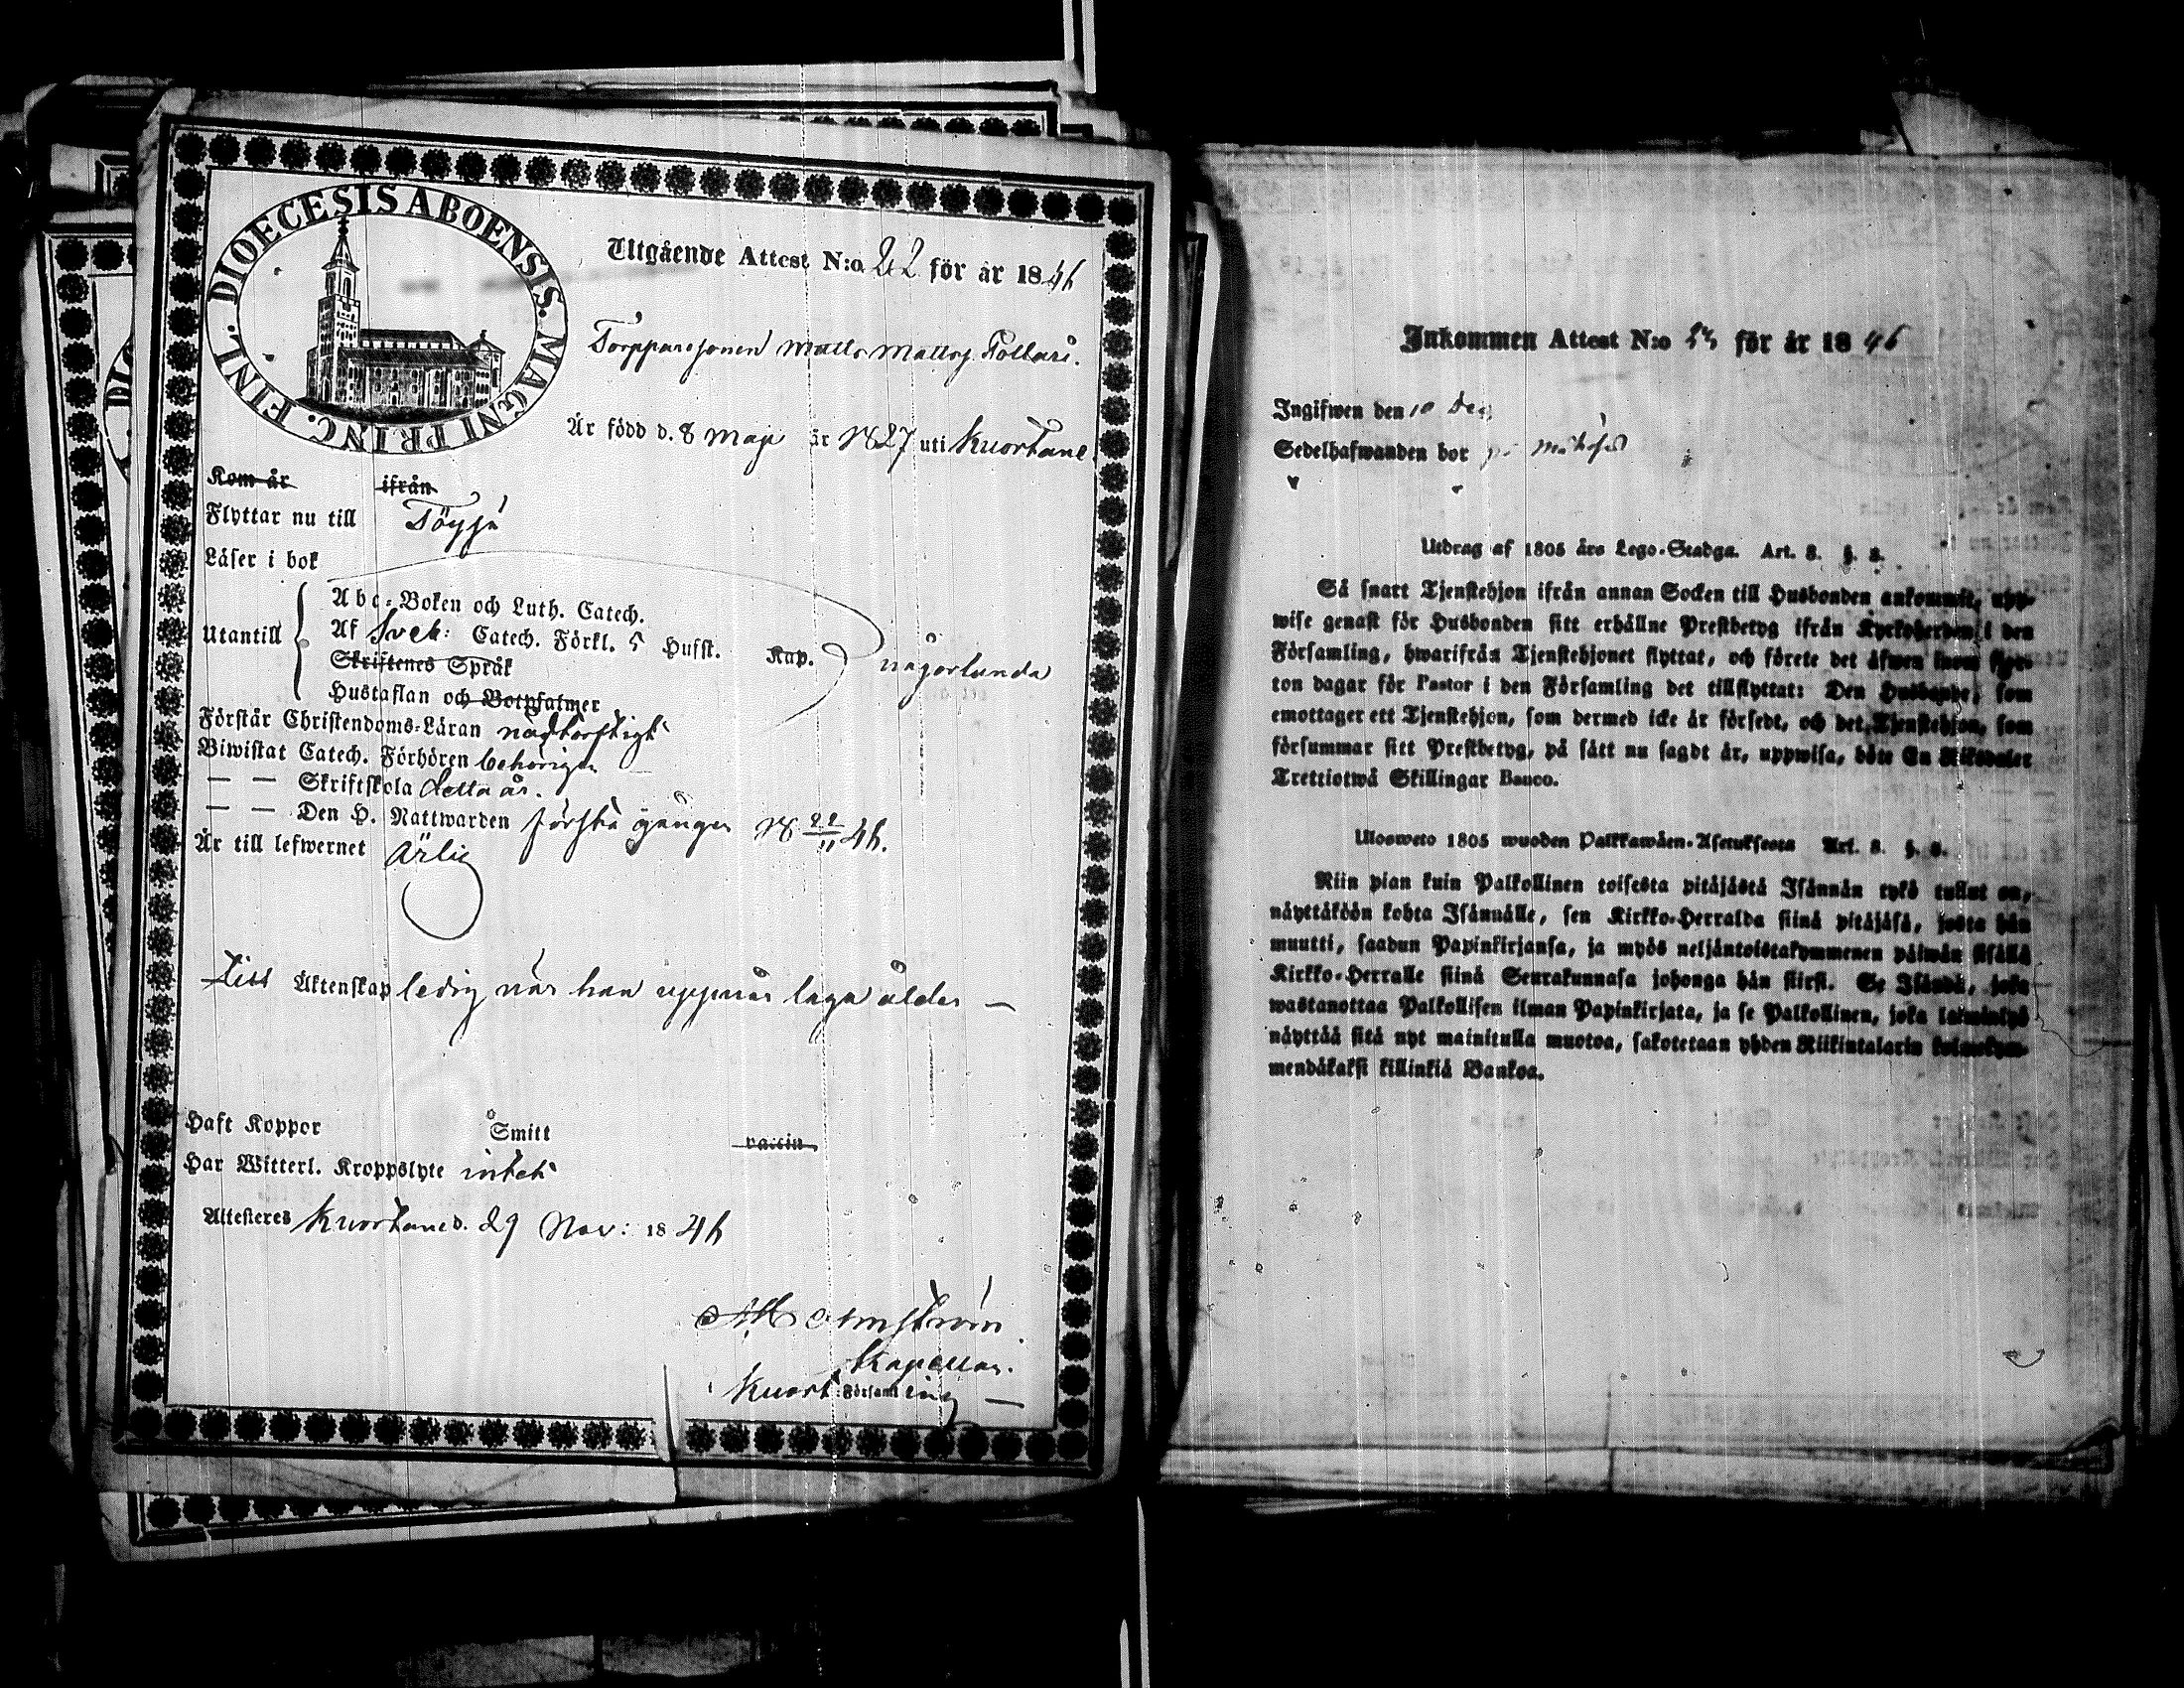 DIOECESIS ABOENSIS. MAGNI PRINC. FINL.
Utgående Attest N:o 22 för år 1846
Torpparesonen Matts Mattss. Pollari.
Är född d. 8 Maji år 1827 uti Kuortane
Kom år ifrån
Flyttar nu till Töysä
Läser i bok
Utantill
Abc-Boken och Luth. Catech.
Af Sveb: Catech. Förkl. 5 Hufst. Kap.
någorlunda
Skriftenes Språk
Hustaflan och Botpsalmer
Förstår Christendoms-Läran nödtorftigt
Biwistat Catech. Förhören behörigen
— — Skriftskola detta år.
— — Den H. Nattwarden första gången 18 22/11 46.
Är till lefwernet ärlig
Till Äktenskap ledig när han uppnår laga ålder —
Haft Koppor Smitt vaccin
Har Witterl. Kroppslyte intet
Attesteres Kuortane d. 29 Nov: 1846
Holmström
Kapellan.
Kuort: Församling —
Inkommen Attest N:o för år 1846
Ingifwen den 10 Dec.
Sedelhafwanden bor på
Utdrag af 1805 års Lego-Stadga. Art. 8. §. 8.
Så snart Tjenstehjon ifrån annan Socken till Husbonden ankommit, upp-
wise genast för Husbonden sitt erhållne Prestbetyg ifrån Kyrkoherden i den
Församling, hwarifrån Tjenstehjonet flyttat, och förete det äfwen inom fjor-
ton dagar för Pastor i den Församling det tillflyttat: Den Husbonde, som
emottager ett Tjenstehjon, som dermed icke är försedt, och det Tjenstehjon, som
försummar sitt Prestbetyg, på sätt nu sagdt är, uppwisa, böte En Riksdaler
Trettiotwå Skillingar Banco.
Ulosweto 1805 wuoden Palkkawäen-Asetuksesta Art. 8. §. 8.
Niin pian kuin Palkollinen toisesta pitäjästä Isännän tykö tullut on,
näyttäköön kohta Isännälle, sen Kirkko-Herralda siinä pitäjäsä, josta hän
muutti, saadun Papinkirjansa, ja myös neljäntoistakymmenen päiwän sisällä
Kirkko-Herralle siinä Seurakunnasa johonga hän siirst. Se Isändä, joka
wastanottaa Palkollisen ilman Papinkirjata, ja se Palkollinen, joka laiminlyö
näyttää sitä nyt mainitulla muotoa, sakotetaan yhden Riikintalarin kolmekym-
mendäkaksi killinkiä Bankoa.